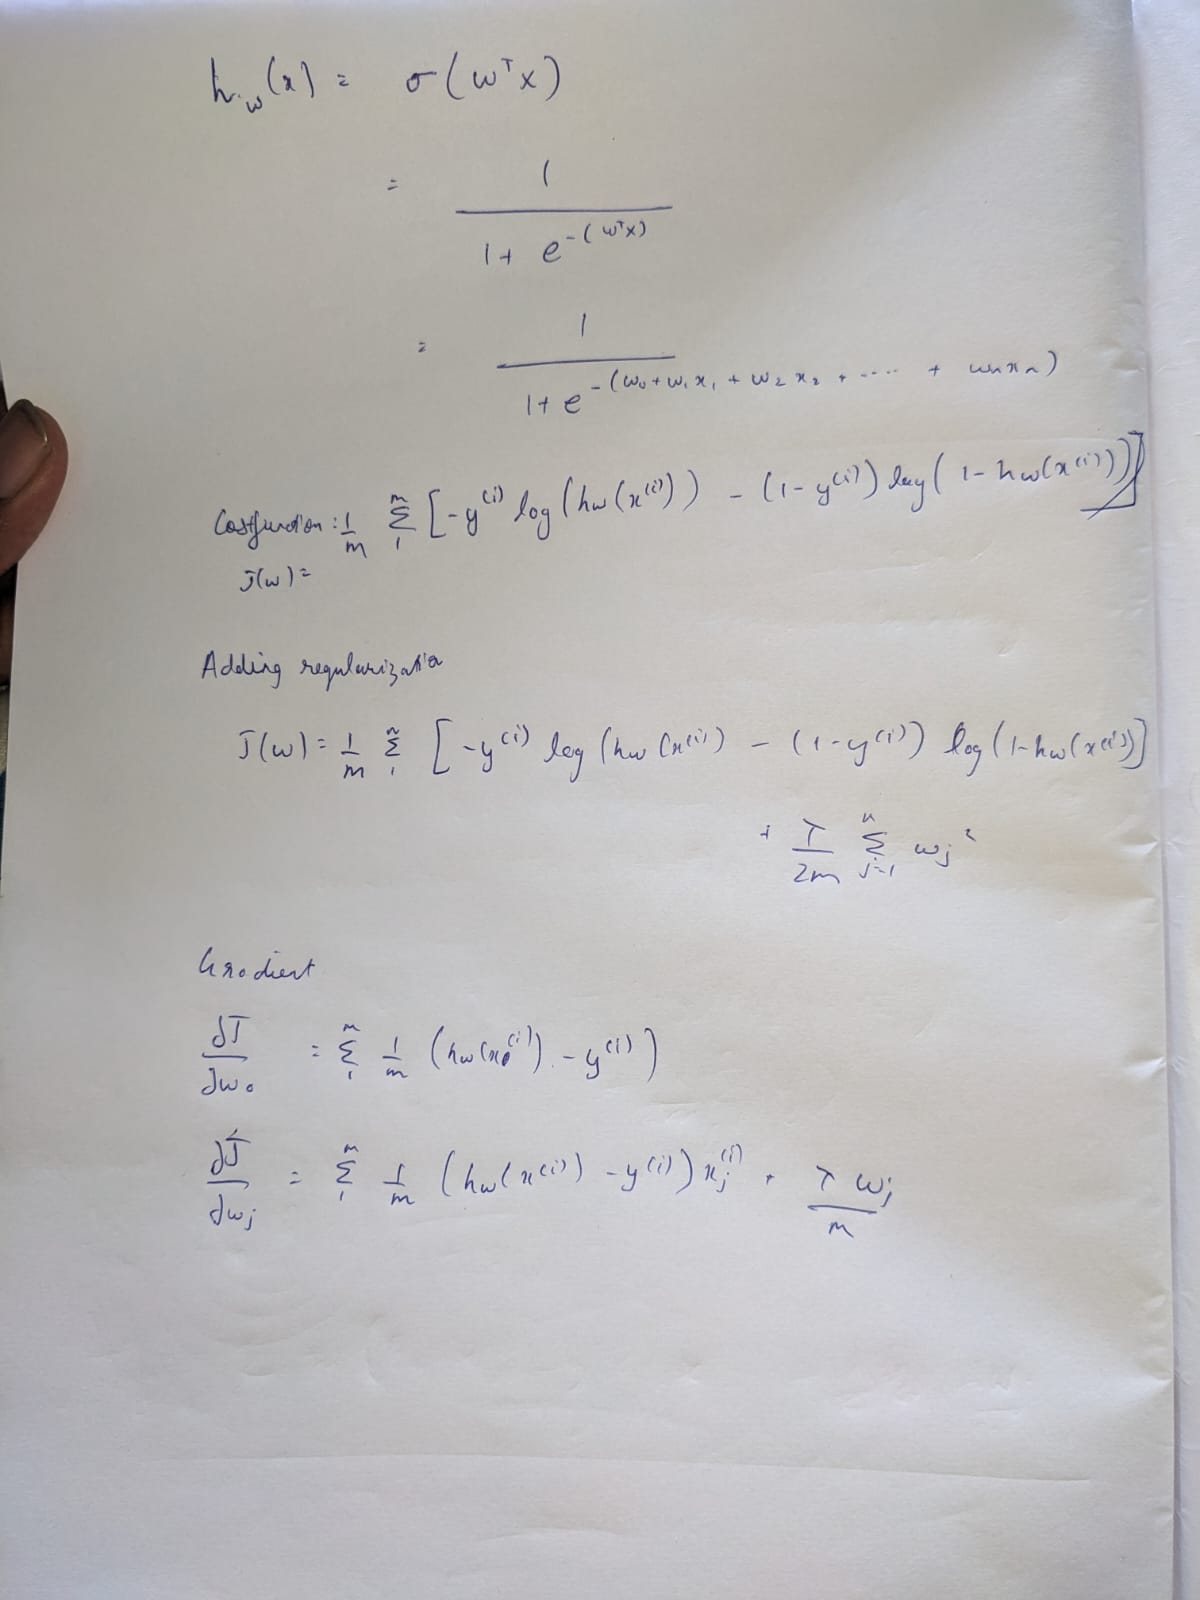 h_w(x) = σ(wᵀx)
= 1 / (1 + e^-(wᵀx))
= 1 / (1 + e^-(w₀ + w₁x₁ + w₂x₂ + ···· + wₙxₙ))
Costfunction : 1/m Σ₁ᵐ [-y⁽ⁱ⁾ log(hw(x⁽ⁱ⁾)) - (1-y⁽ⁱ⁾) log(1-hw(x⁽ⁱ⁾))]
J(w) =
Adding regularization
J(w) = 1/m Σ₁ᵐ [-y⁽ⁱ⁾ log(hw(x⁽ⁱ⁾) - (1-y⁽ⁱ⁾) log(1-hw(x⁽ⁱ⁾)]
+ λ/2m Σⱼ₌₁ⁿ wⱼ²
Gradient
∂J/∂w₀ = Σ₁ᵐ 1/m (hw(x⁽ⁱ⁾) - y⁽ⁱ⁾)
∂J/∂wⱼ = Σ₁ᵐ 1/m (hw(x⁽ⁱ⁾) - y⁽ⁱ⁾) xⱼ⁽ⁱ⁾ + λwⱼ/m